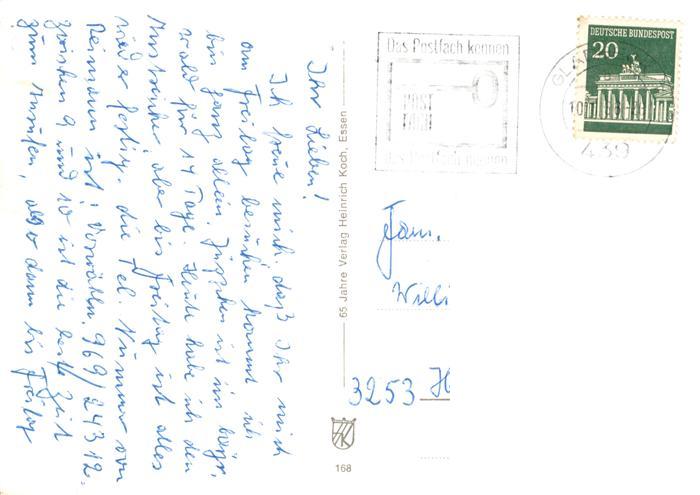 Ihr Lieben!
Ich freue mich, daß Ihr mich
am Freitag besuchen kommt ich
bin ganz allein. ist im bayr.
wald für 14 Tage. Heute habe ich den
Anstreicher, aber bis Freitag ist alles
wieder fertig. die Tel. Nummer von
Reimann ist: Vorwähln. 969/24312.
zwischen 9 und 10 ist die beste Zeit
zum Anrufen, also dann bis Freitag
65 Jahre Verlag Heinrich Koch, Essen
168
Das Postfach kennen
POST
FACH
das Postfach nennen
DEUTSCHE BUNDESPOST
20
439
Fam.
Willi
3253 H